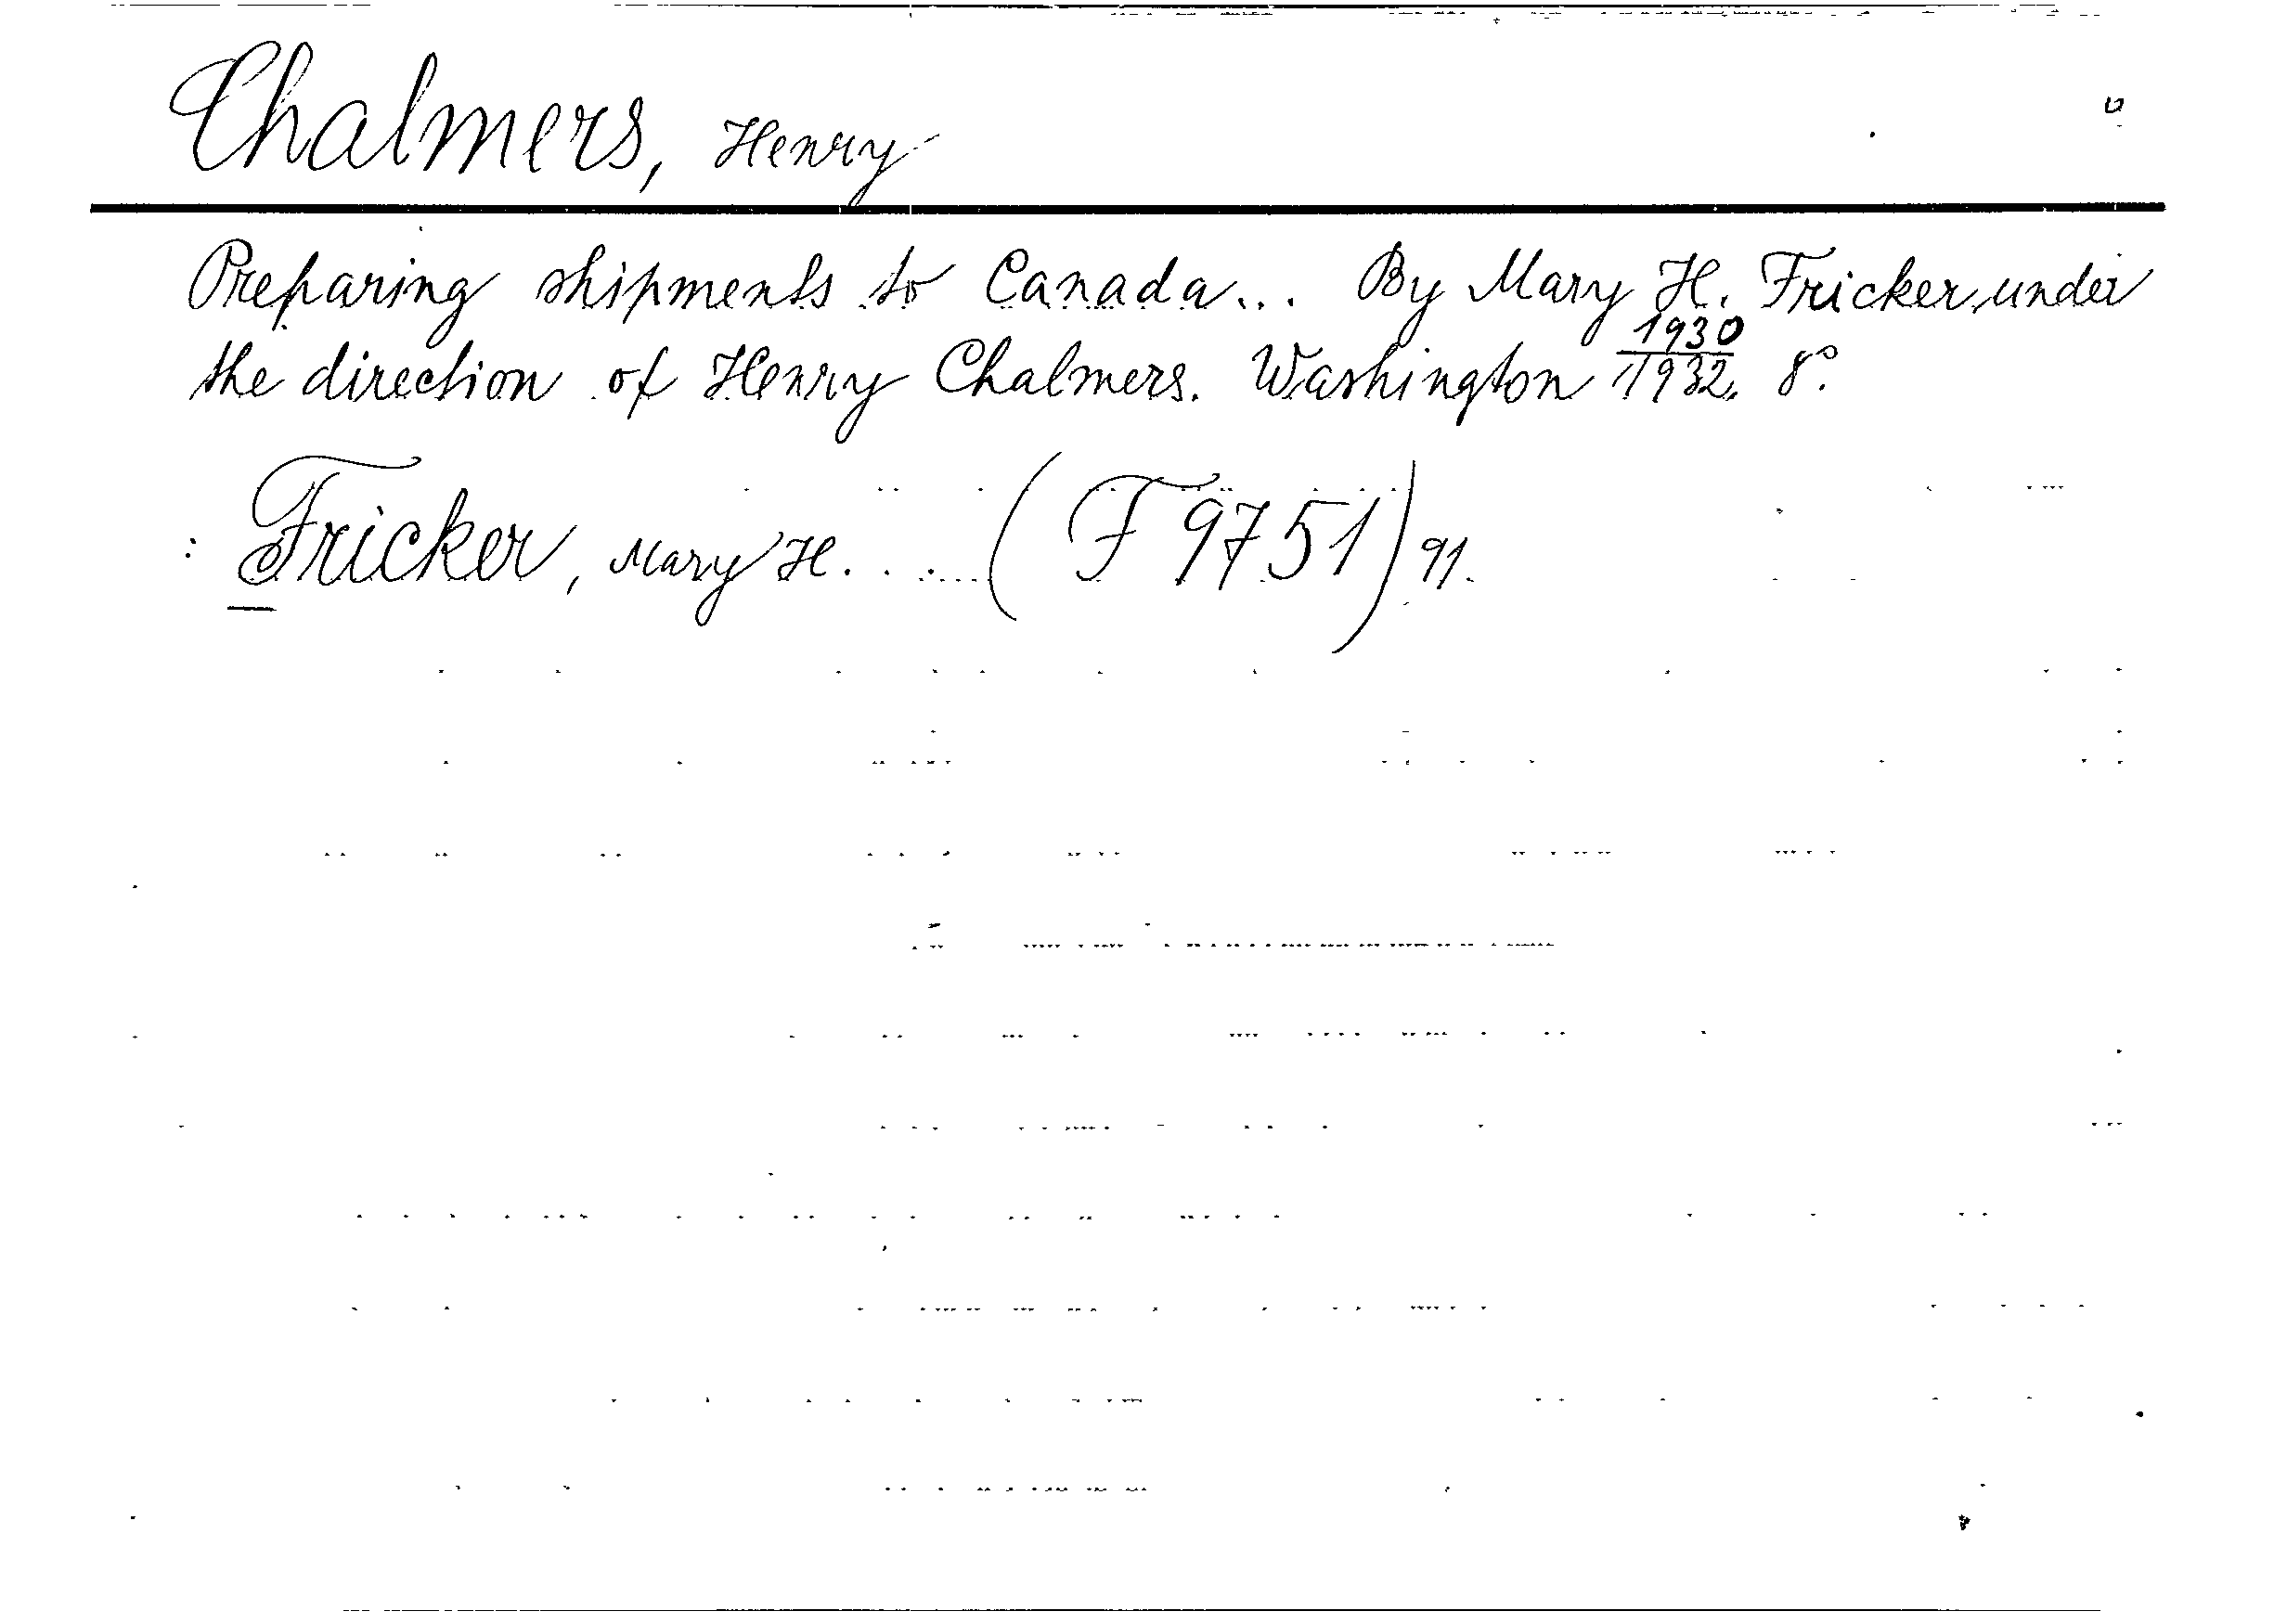 Chalmers, Henry
Preparing shipments to Canada... By Mary H. Fricker, under
the direction of Henry Chalmers. Washington 1930/1932. 8°.
: Fricker, Mary H. . . . (F 9751) 91.